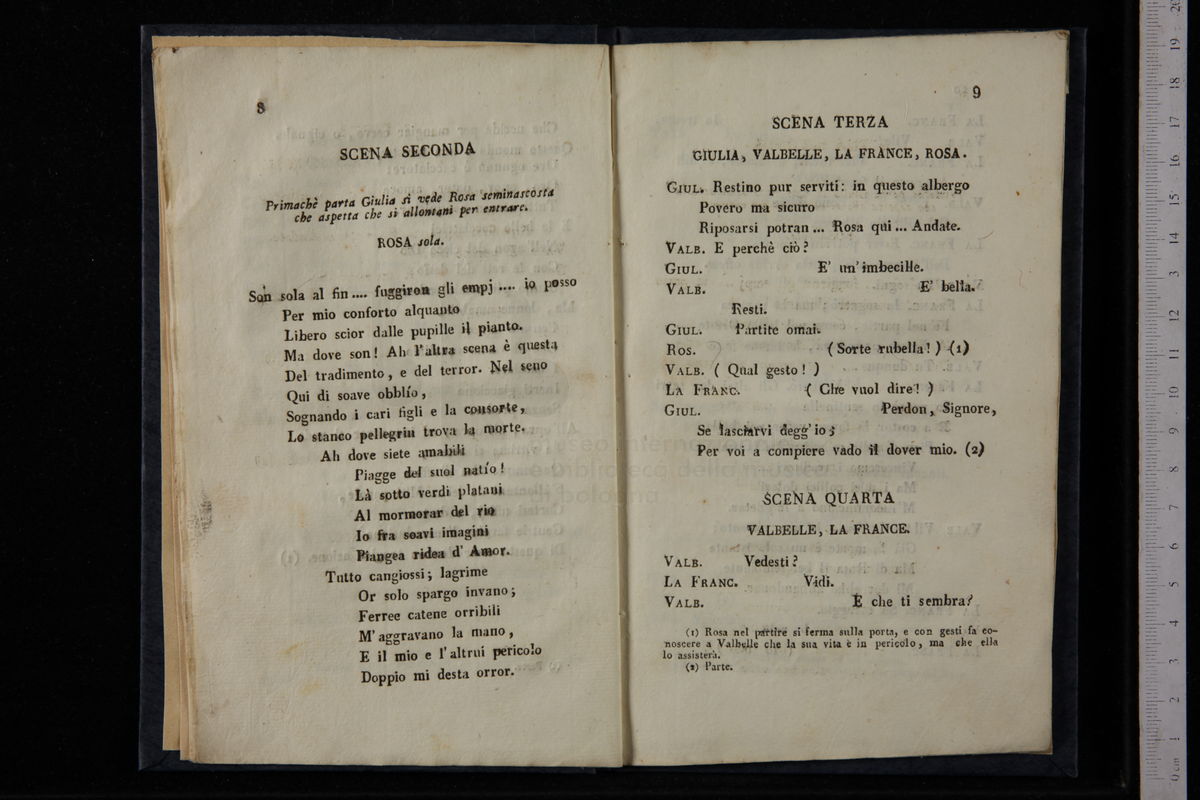 8
SCENA SECONDA
Primachè parta Giulia si vede Rosa seminascosta
che aspetta che si allontani per entrare.
ROSA sola.
Son sola al fin .... fuggiron gli empj .... io posso
Per mio conforto alquanto
Libero scior dalle pupille il pianto.
Ma dove son! Ah l'altra scena è questa
Del tradimento, e del terror. Nel seno
Qui di soave obblío,
Sognando i cari figli e la consorte,
Lo stanco pellegrin trova la morte.
Ah dove siete amabili
Piagge del suol natío!
Là sotto verdi platani
Al mormorar del rio
Io fra soavi imagini
Piangea ridea d' Amor.
Tutto cangiossi; lagrime
Or solo spargo invano;
Ferree catene orribili
M' aggravano la mano,
E il mio e l'altrui pericolo
Doppio mi desta orror.
9
SCENA TERZA
GIULIA, VALBELLE, LA FRANCE, ROSA.
GIUL. Restino pur serviti: in questo albergo
Povero ma sicuro
Riposarsi potran ... Rosa qui ... Andate.
VALB. E perchè ciò?
GIUL. E' un' imbecille.
VALB. E' bella.
Resti.
GIUL. Partite omai.
ROS. (Sorte rubella!) (1)
VALB. ( Qual gesto! )
LA FRANC. ( Che vuol dire! )
GIUL. Perdon, Signore,
Se lasciarvi degg' io;
Per voi a compiere vado il dover mio. (2)
SCENA QUARTA
VALBELLE, LA FRANCE.
VALB. Vedesti?
LA FRANC. Vidi.
VALB. E che ti sembra?
(1) Rosa nel partire si ferma sulla porta, e con gesti fa co-
noscere a Valbelle che la sua vita è in pericolo, ma che ella
lo assisterà.
(2) Parte.